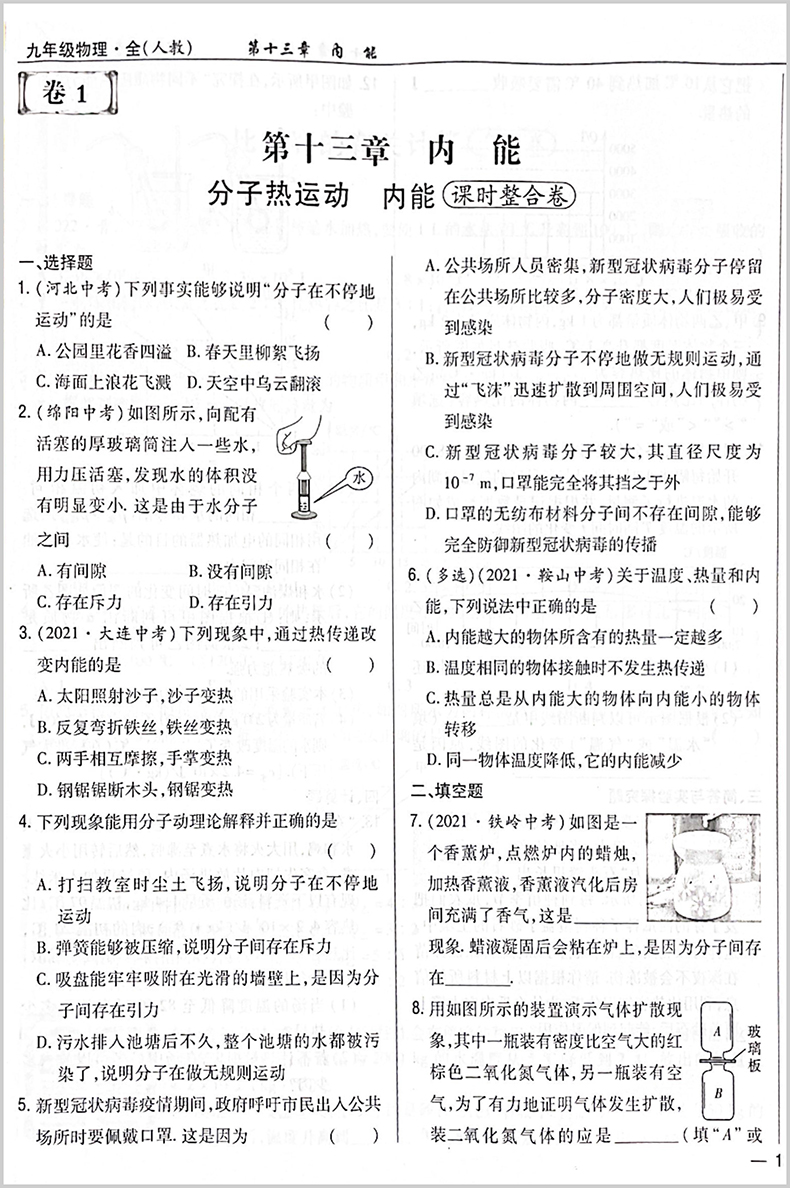 九年级物理·全(人教) 第十三章 内 能
卷 1
第十三章 内 能
分子热运动 内能 课时整合卷
一、选择题
1. (河北中考)下列事实能够说明“分子在不停地
运动”的是 ( )
A. 公园里花香四溢 B. 春天里柳絮飞扬
C. 海面上浪花飞溅 D. 天空中乌云翻滚
2. (绵阳中考)如图所示,向配有
活塞的厚玻璃筒注入一些水,
用力压活塞,发现水的体积没
有明显变小. 这是由于水分子
之间 ( )
水
A. 有间隙 B. 没有间隙
C. 存在斥力 D. 存在引力
3. (2021·大连中考)下列现象中,通过热传递改
变内能的是 ( )
A. 太阳照射沙子,沙子变热
B. 反复弯折铁丝,铁丝变热
C. 两手相互摩擦,手掌变热
D. 钢锯锯断木头,钢锯变热
4. 下列现象能用分子动理论解释并正确的是
( )
A. 打扫教室时尘土飞扬,说明分子在不停地
运动
B. 弹簧能够被压缩,说明分子间存在斥力
C. 吸盘能牢牢吸附在光滑的墙壁上,是因为分
子间存在引力
D. 污水排入池塘后不久,整个池塘的水都被污
染了,说明分子在做无规则运动
5. 新型冠状病毒疫情期间,政府呼吁市民出入公共
场所时要佩戴口罩. 这是因为 ( )
A. 公共场所人员密集,新型冠状病毒分子停留
在公共场所比较多,分子密度大,人们极易受
到感染
B. 新型冠状病毒分子不停地做无规则运动,通
过“飞沫”迅速扩散到周围空间,人们极易受
到感染
C. 新型冠状病毒分子较大,其直径尺度为
10⁻⁷ m,口罩能完全将其挡之于外
D. 口罩的无纺布材料分子间不存在间隙,能够
完全防御新型冠状病毒的传播
6. (多选)(2021·鞍山中考)关于温度、热量和内
能,下列说法中正确的是 ( )
A. 内能越大的物体所含有的热量一定越多
B. 温度相同的物体接触时不发生热传递
C. 热量总是从内能大的物体向内能小的物体
转移
D. 同一物体温度降低,它的内能减少
二、填空题
7. (2021·铁岭中考)如图是一
个香薰炉,点燃炉内的蜡烛,
加热香薰液,香薰液汽化后房
间充满了香气,这是______
现象. 蜡液凝固后会粘在炉上,是因为分子间存
在______.
8. 用如图所示的装置演示气体扩散现
象,其中一瓶装有密度比空气大的红
棕色二氧化氮气体,另一瓶装有空
气,为了有力地证明气体发生扩散,
装二氧化氮气体的应是______(填“A”或
A
B
玻璃板
— 1